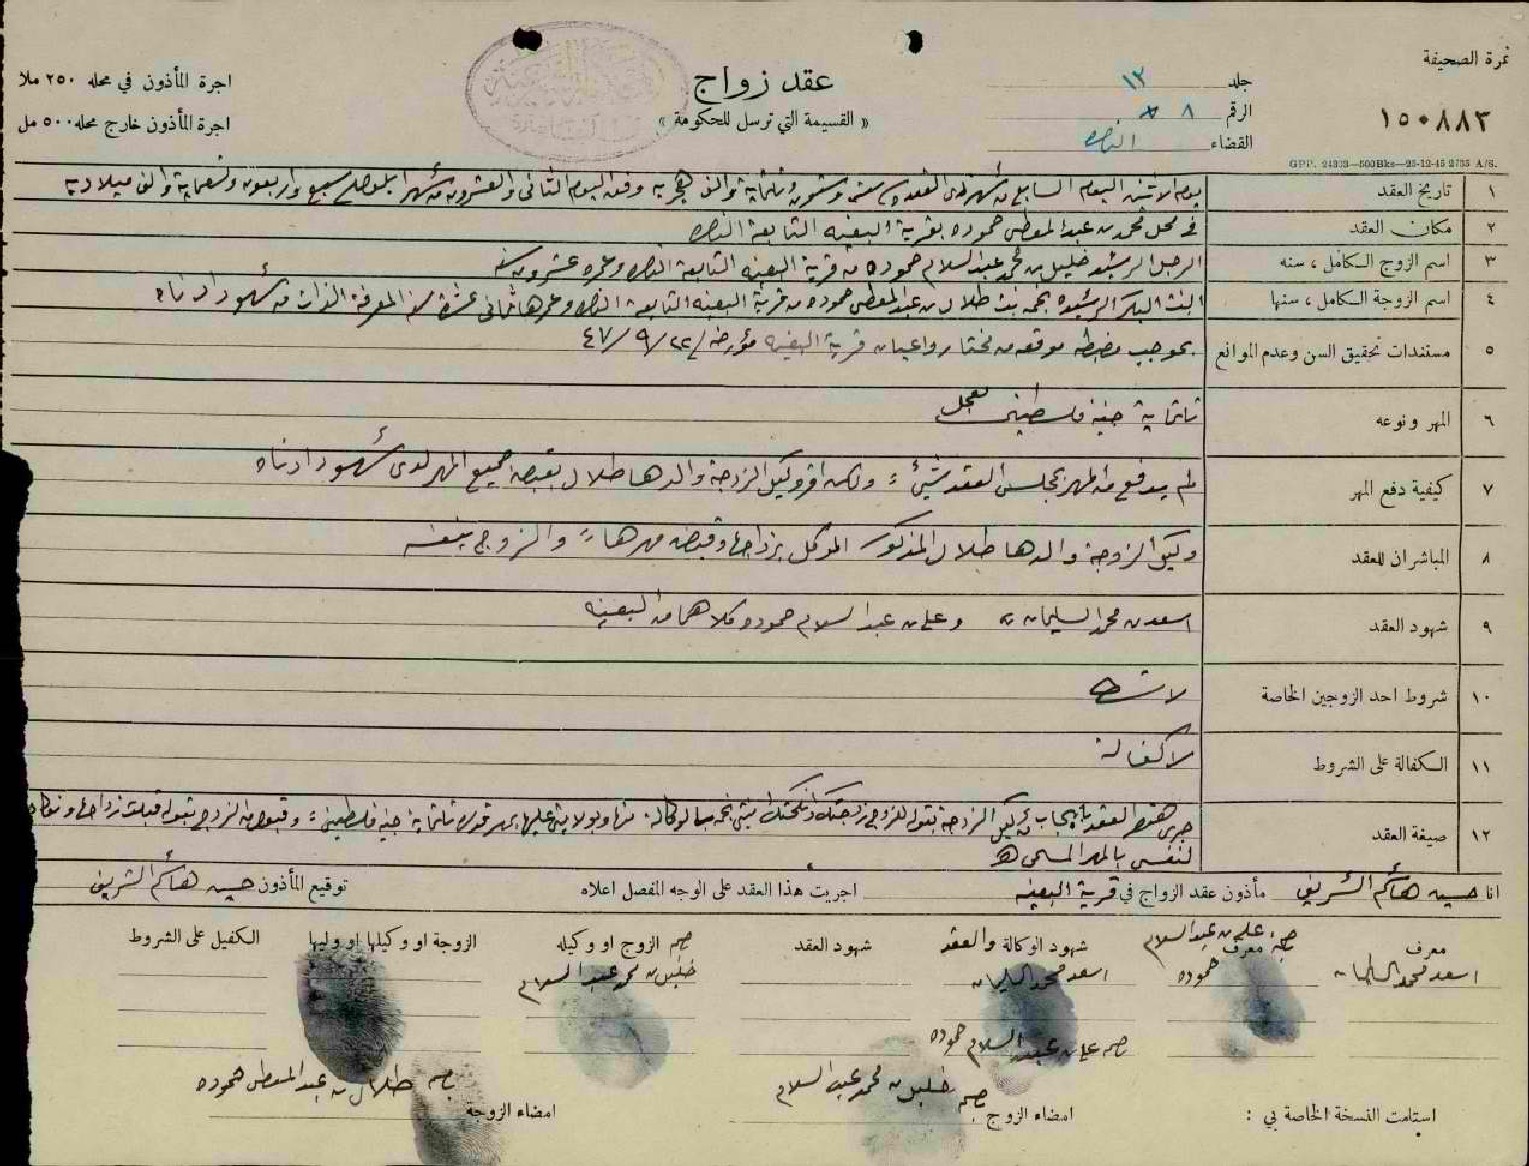 نمرة الصحيفة
١٥٠٨٨٣
جلد ١٢
الرقم ٨
القضاء الناصره
عقد زواج
« القسيمة التي ترسل للحكومة »
اجرة المأذون في محله ٢٥٠ ملا
اجرة المأذون خارج محله ٥٠٠ مل
GPP. 24333—500Bks—23-12-45 2735 A/S.
١ تاريخ العقد يوم الاثنين اليوم السابع من شهر ذي القعده سنه ست وستين وثلثماية والف هجريه وفق اليوم الثاني والعشرون من شهر ايلول سنه سبع واربعون وتسعماية والف ميلاديه
٢ مكان العقد في محل محمد بن عبد المعطي حموده بقرية البعينه التابعة الناصره
٣ اسم الزوج الكامل ، سنه الرجل الرشيد خليل بن محمد عبد السلام حموده من قرية البعينه التابعة الناصره وعمره عشرون سنه
٤ اسم الزوجة الكامل ، سنها البنت البكر الرشيده نجمه بنت طلال بن عبد المعطي حموده من قرية البعينه التابعة الناصره وعمرها ثماني عشرة سنه المعرفة الذات من شهود ادناه
٥ مستندات تحقيق السن وعدم الموانع بموجب مضبطه موقعه من مختار واعيان قرية البعينه مؤرخه ٢٢/ ٩/ ٤٧
٦ المهر ونوعه ثلثماية جنيه فلسطيني معجل
٧ كيفية دفع المهر لم يدفع من المهر بمجلس العقد شيئ ؛ ولكن اقر وكيل الزوجة والدها طلال بقبضه جميع المهر لدى شهود ادناه
٨ المباشران للعقد وكيل الزوجة والدها طلال المذكور الموكل بزواجها وقبض مهرها ؛ والزوج بنفسه
٩ شهود العقد اسعد بن محمد السليمان وعلي بن عبد السلام حموده كلاهما من البعينه
١٠ شروط احد الزوجين الخاصة لا شرط
١١ الكفالة على الشروط لا كفالة
١٢ صيغة العقد جرى هذا العقد بايجاب من وكيل الزوجة بقوله للزوج زوجتك وانكحتك ابنتي نجمه بالوكالة عنها وبولايتي عليها بمهر قدره ثلثماية جنيه فلسطيني ؛ وقبول من الزوج بقوله قبلت زواجها ونكاحها
لنفسي بالمهر المسمى
انا حسين هاشم الشريف مأذون عقد الزواج في قرية البعينه اجريت هذا العقد على الوجه المفصل اعلاه توقيع المأذون حسين هاشم الشريف
معرف
اسعد محمد السليمان
معرف
علي بن عبد السلام
حموده
شهود الوكالة والعقد
اسعد محمد السليمان
علي بن عبد السلام حموده
شهود العقد
الزوج او وكيله
خليل بن محمد عبد السلام
الزوجة او وكيلها او وليها
الكفيل على الشروط
طلال بن عبد المعطي حموده
استلمت النسخة الخاصة بي :
امضاء الزوج خليل بن محمد عبد السلام
امضاء الزوجة